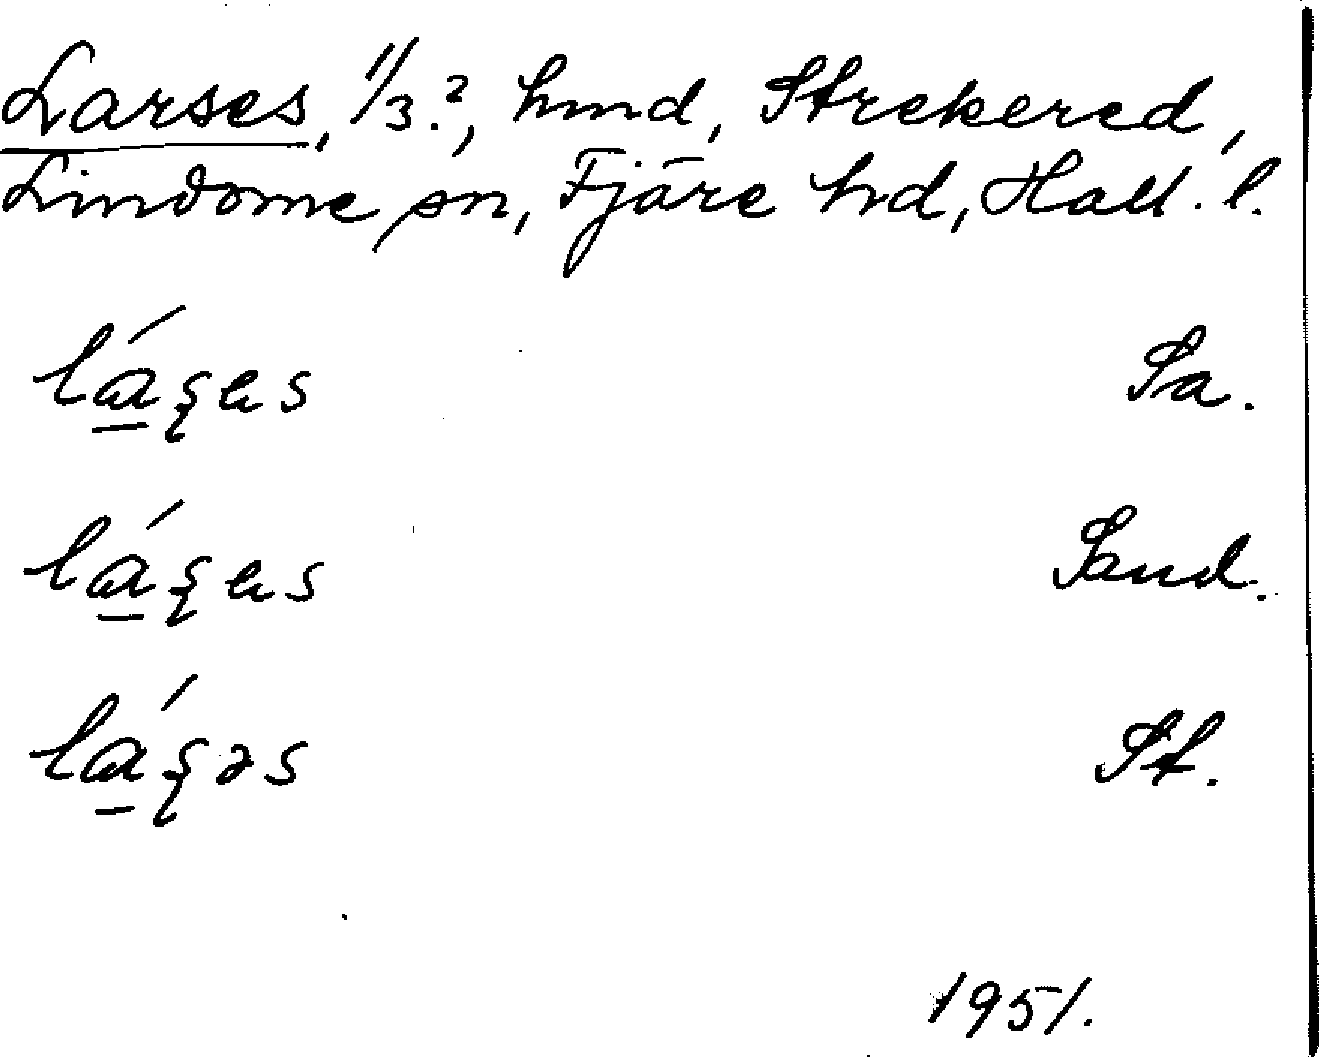 Larses, 1/3.?, hmd, Strekered,
Lindome sn, Fjäre hd, Hall. l.
láʂas Sa.
láʂas Sand.
láʂəs St.
1951.